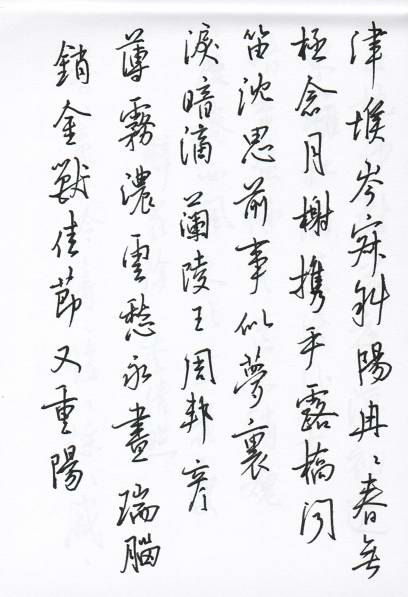 津堠岑寂斜陽冉々春無
極念月榭携手露橋聞
笛沈思前事似夢裏
淚暗滴 蘭陵王周邦彥
薄霧濃雲愁永晝瑞腦
銷金獸佳節又重陽